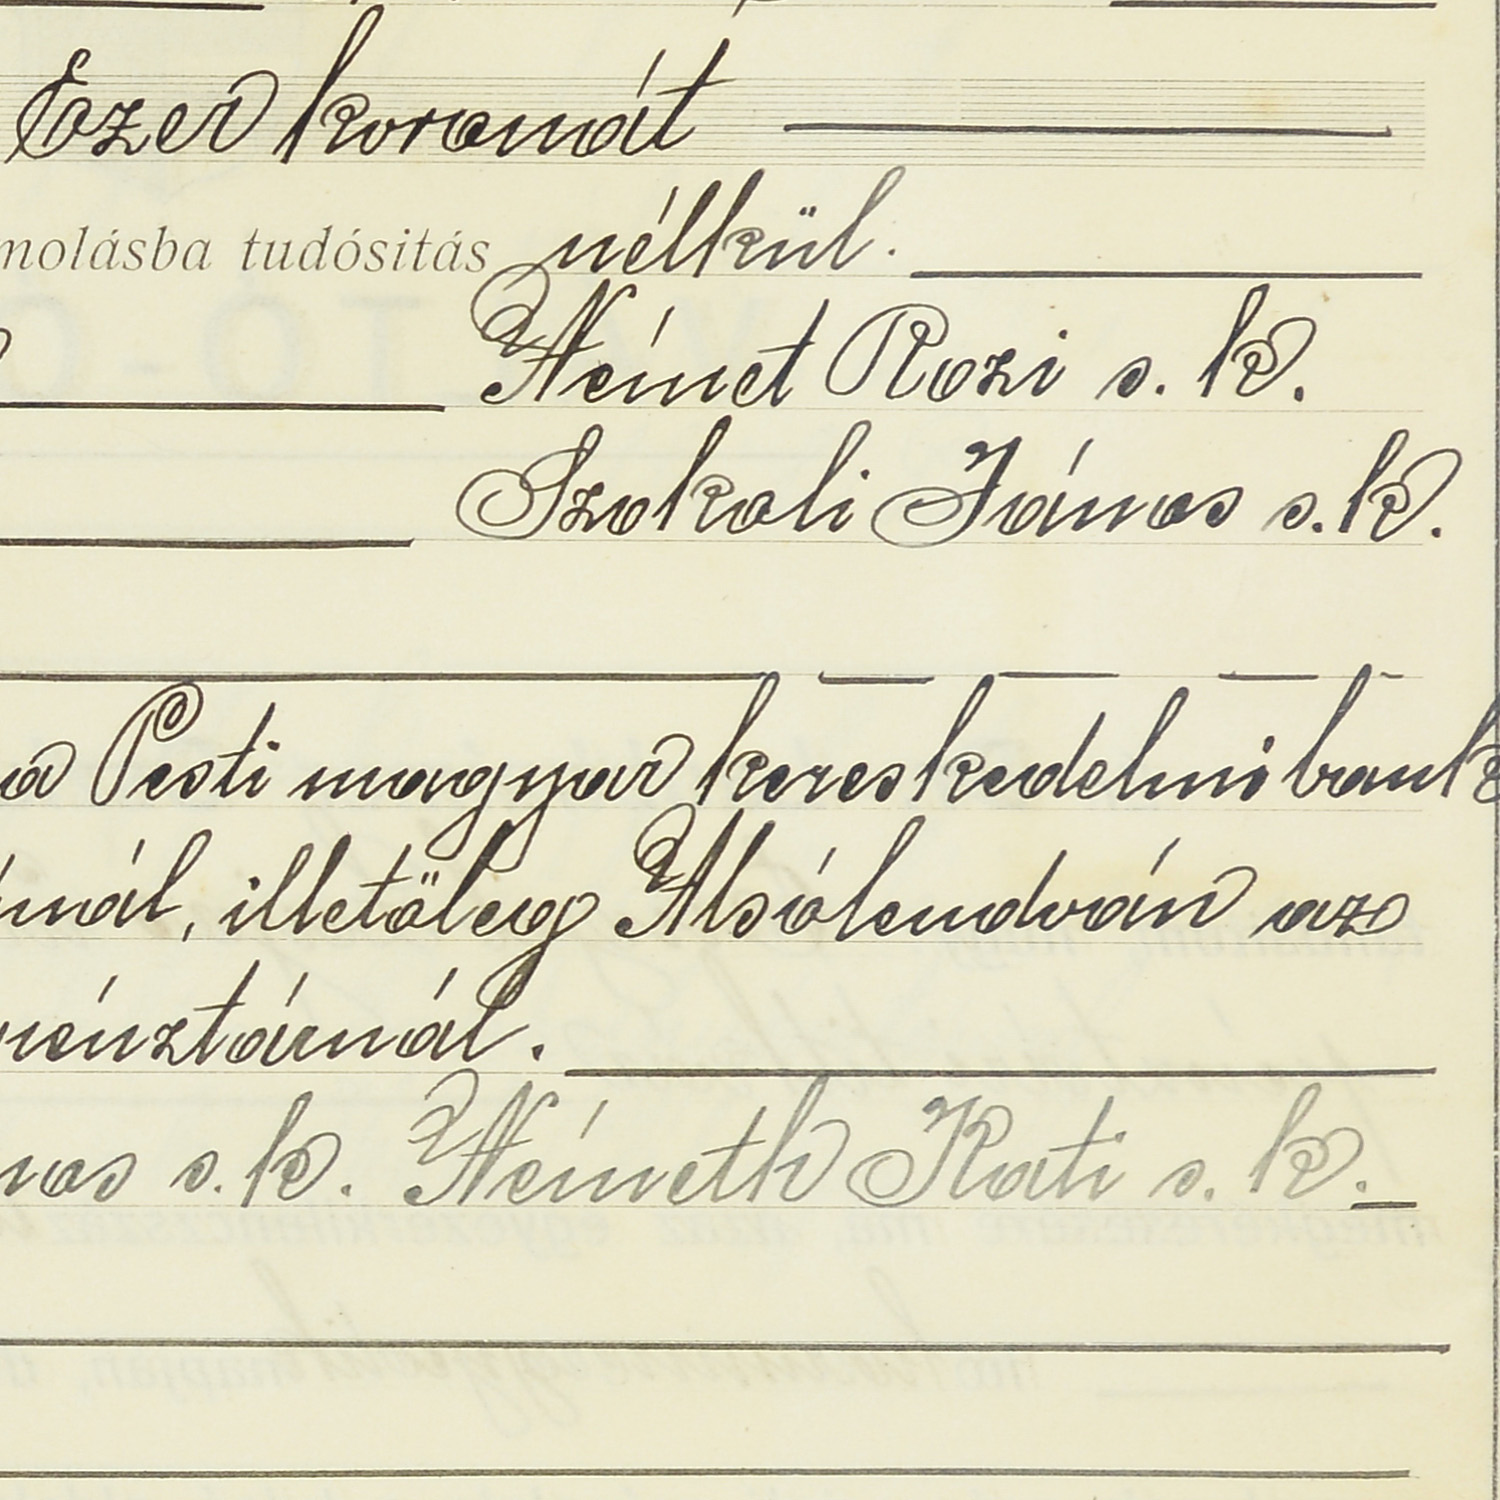 Ezer koronát
molásba tudósitás nélkül.
Német Rozi s. k.
Szokoli János s. k.
a Pesti magyar kereskedelmi bank
nál, illetőleg Alsólendván az
pénztárnál.
nos s. k. Németh Kati s. k.